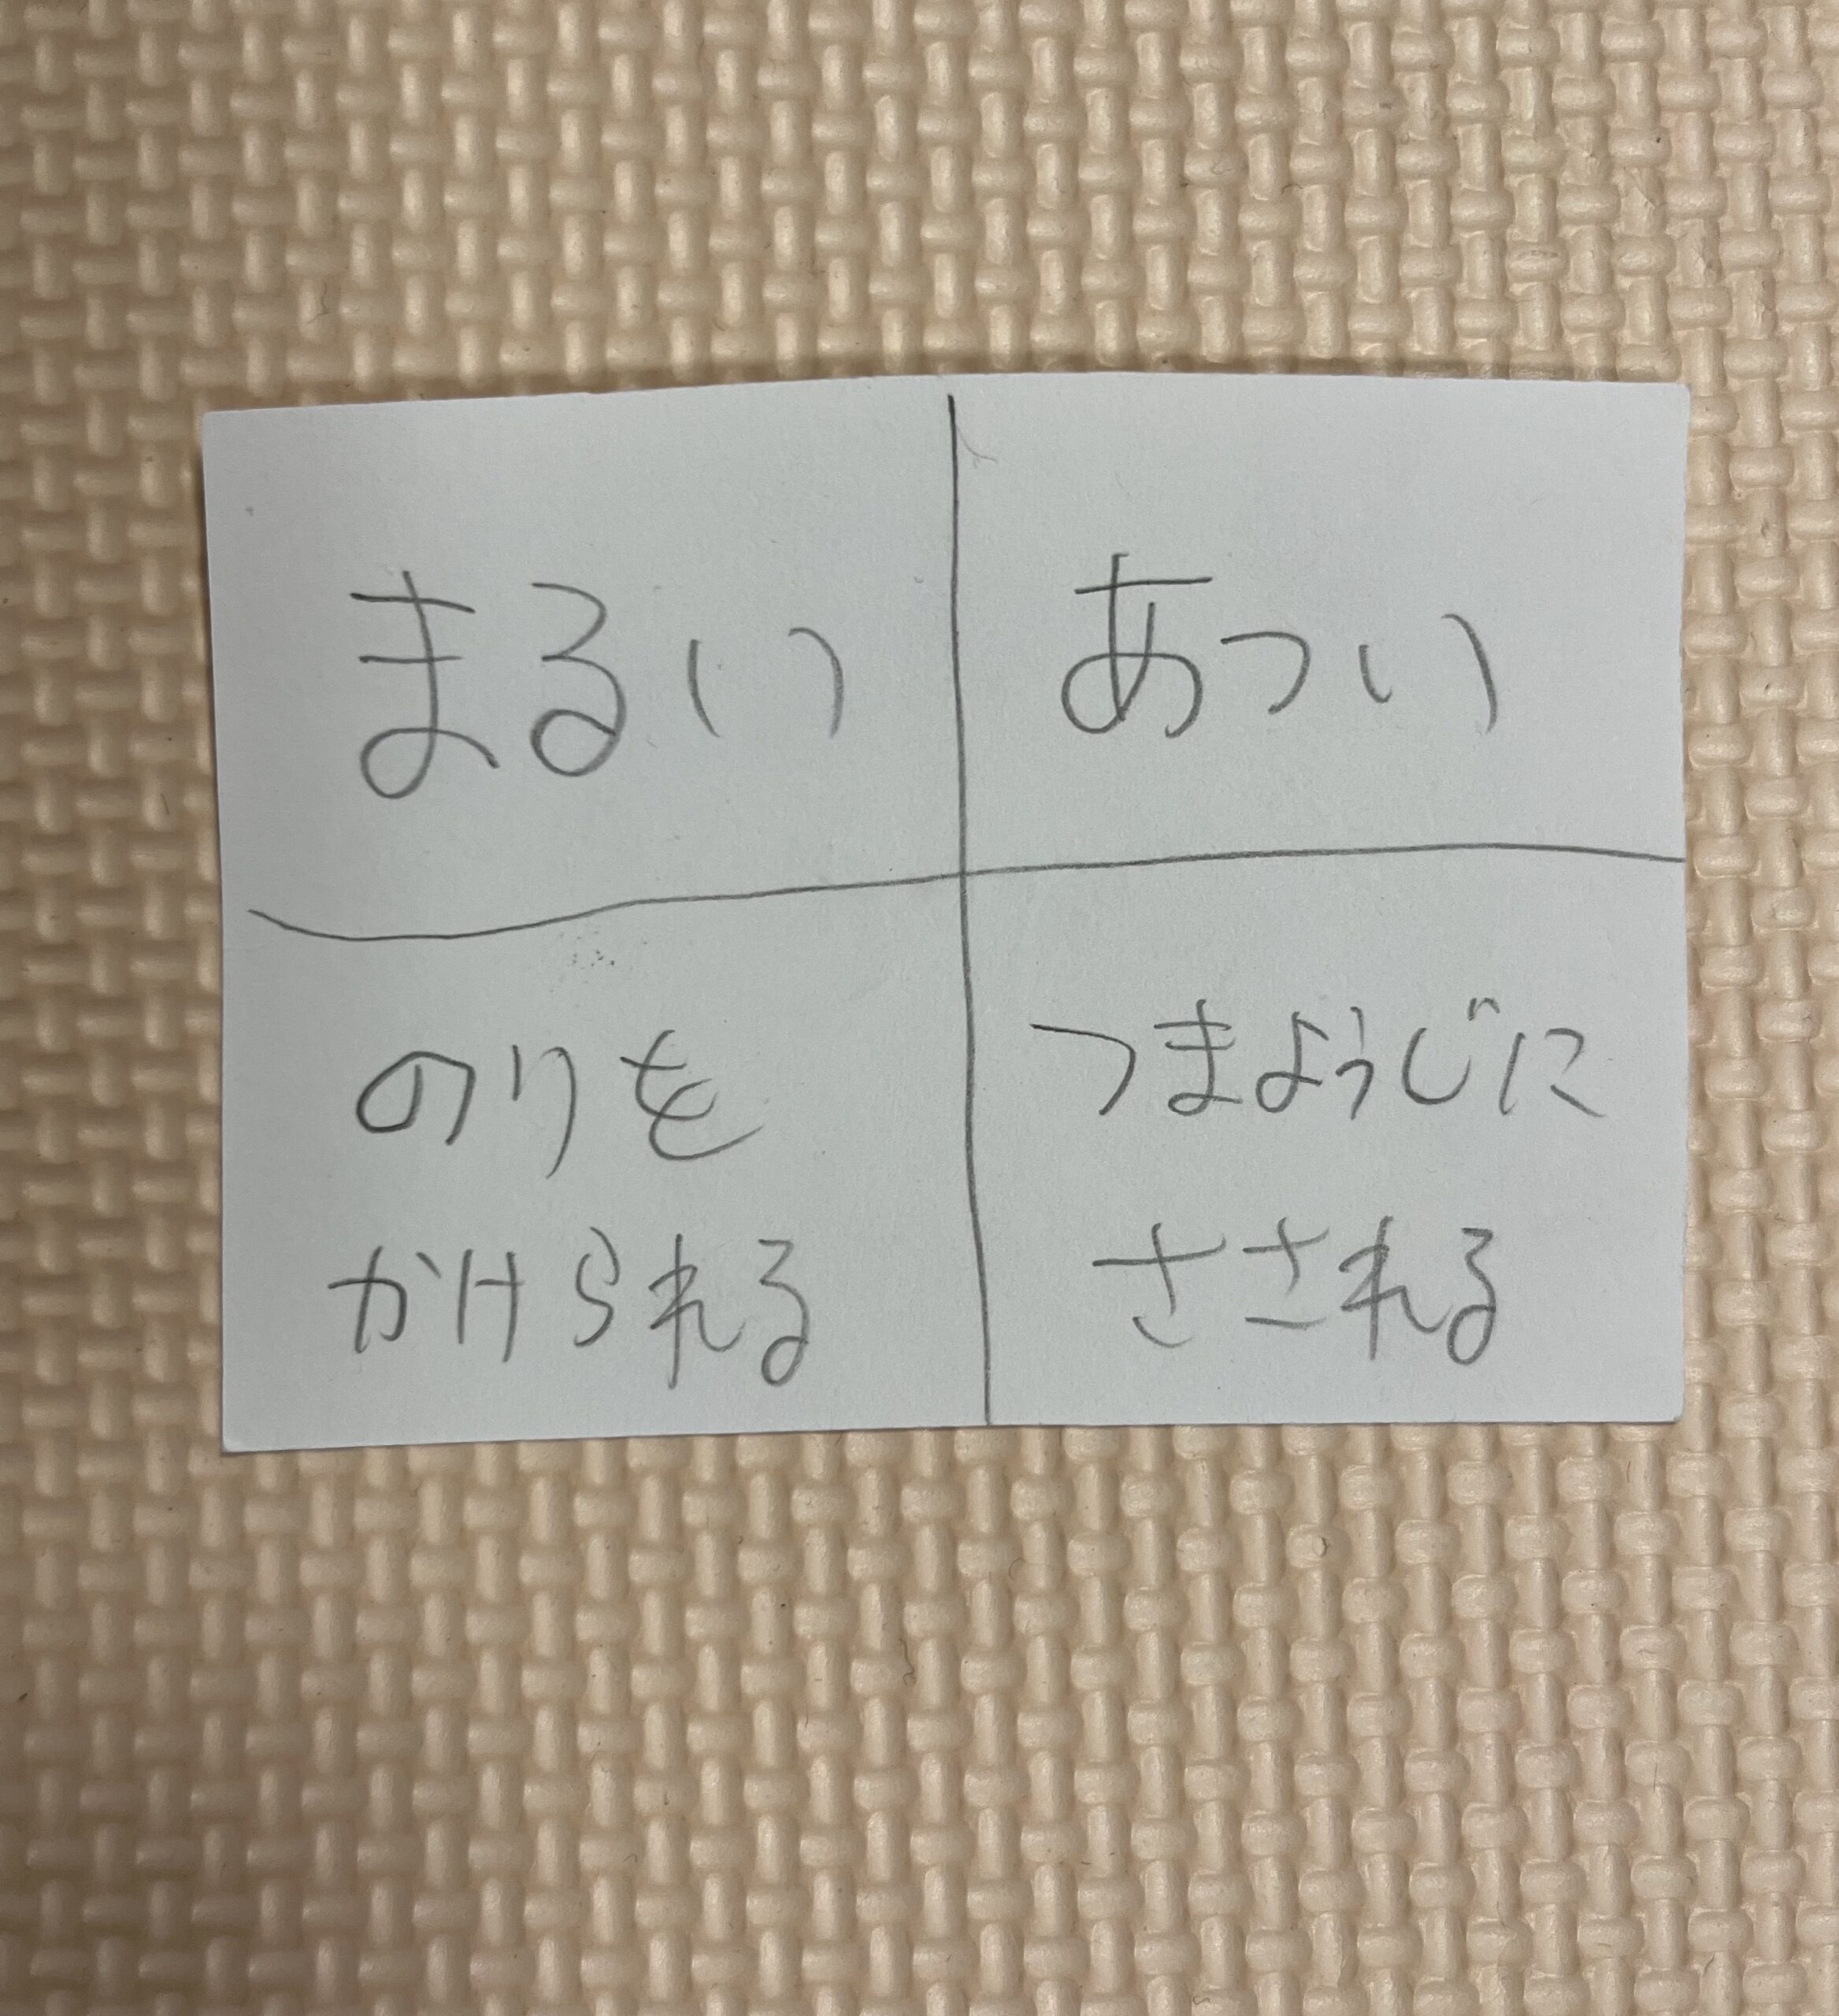 まるい
あつい
のりを
かけられる
つまようじに
さされる